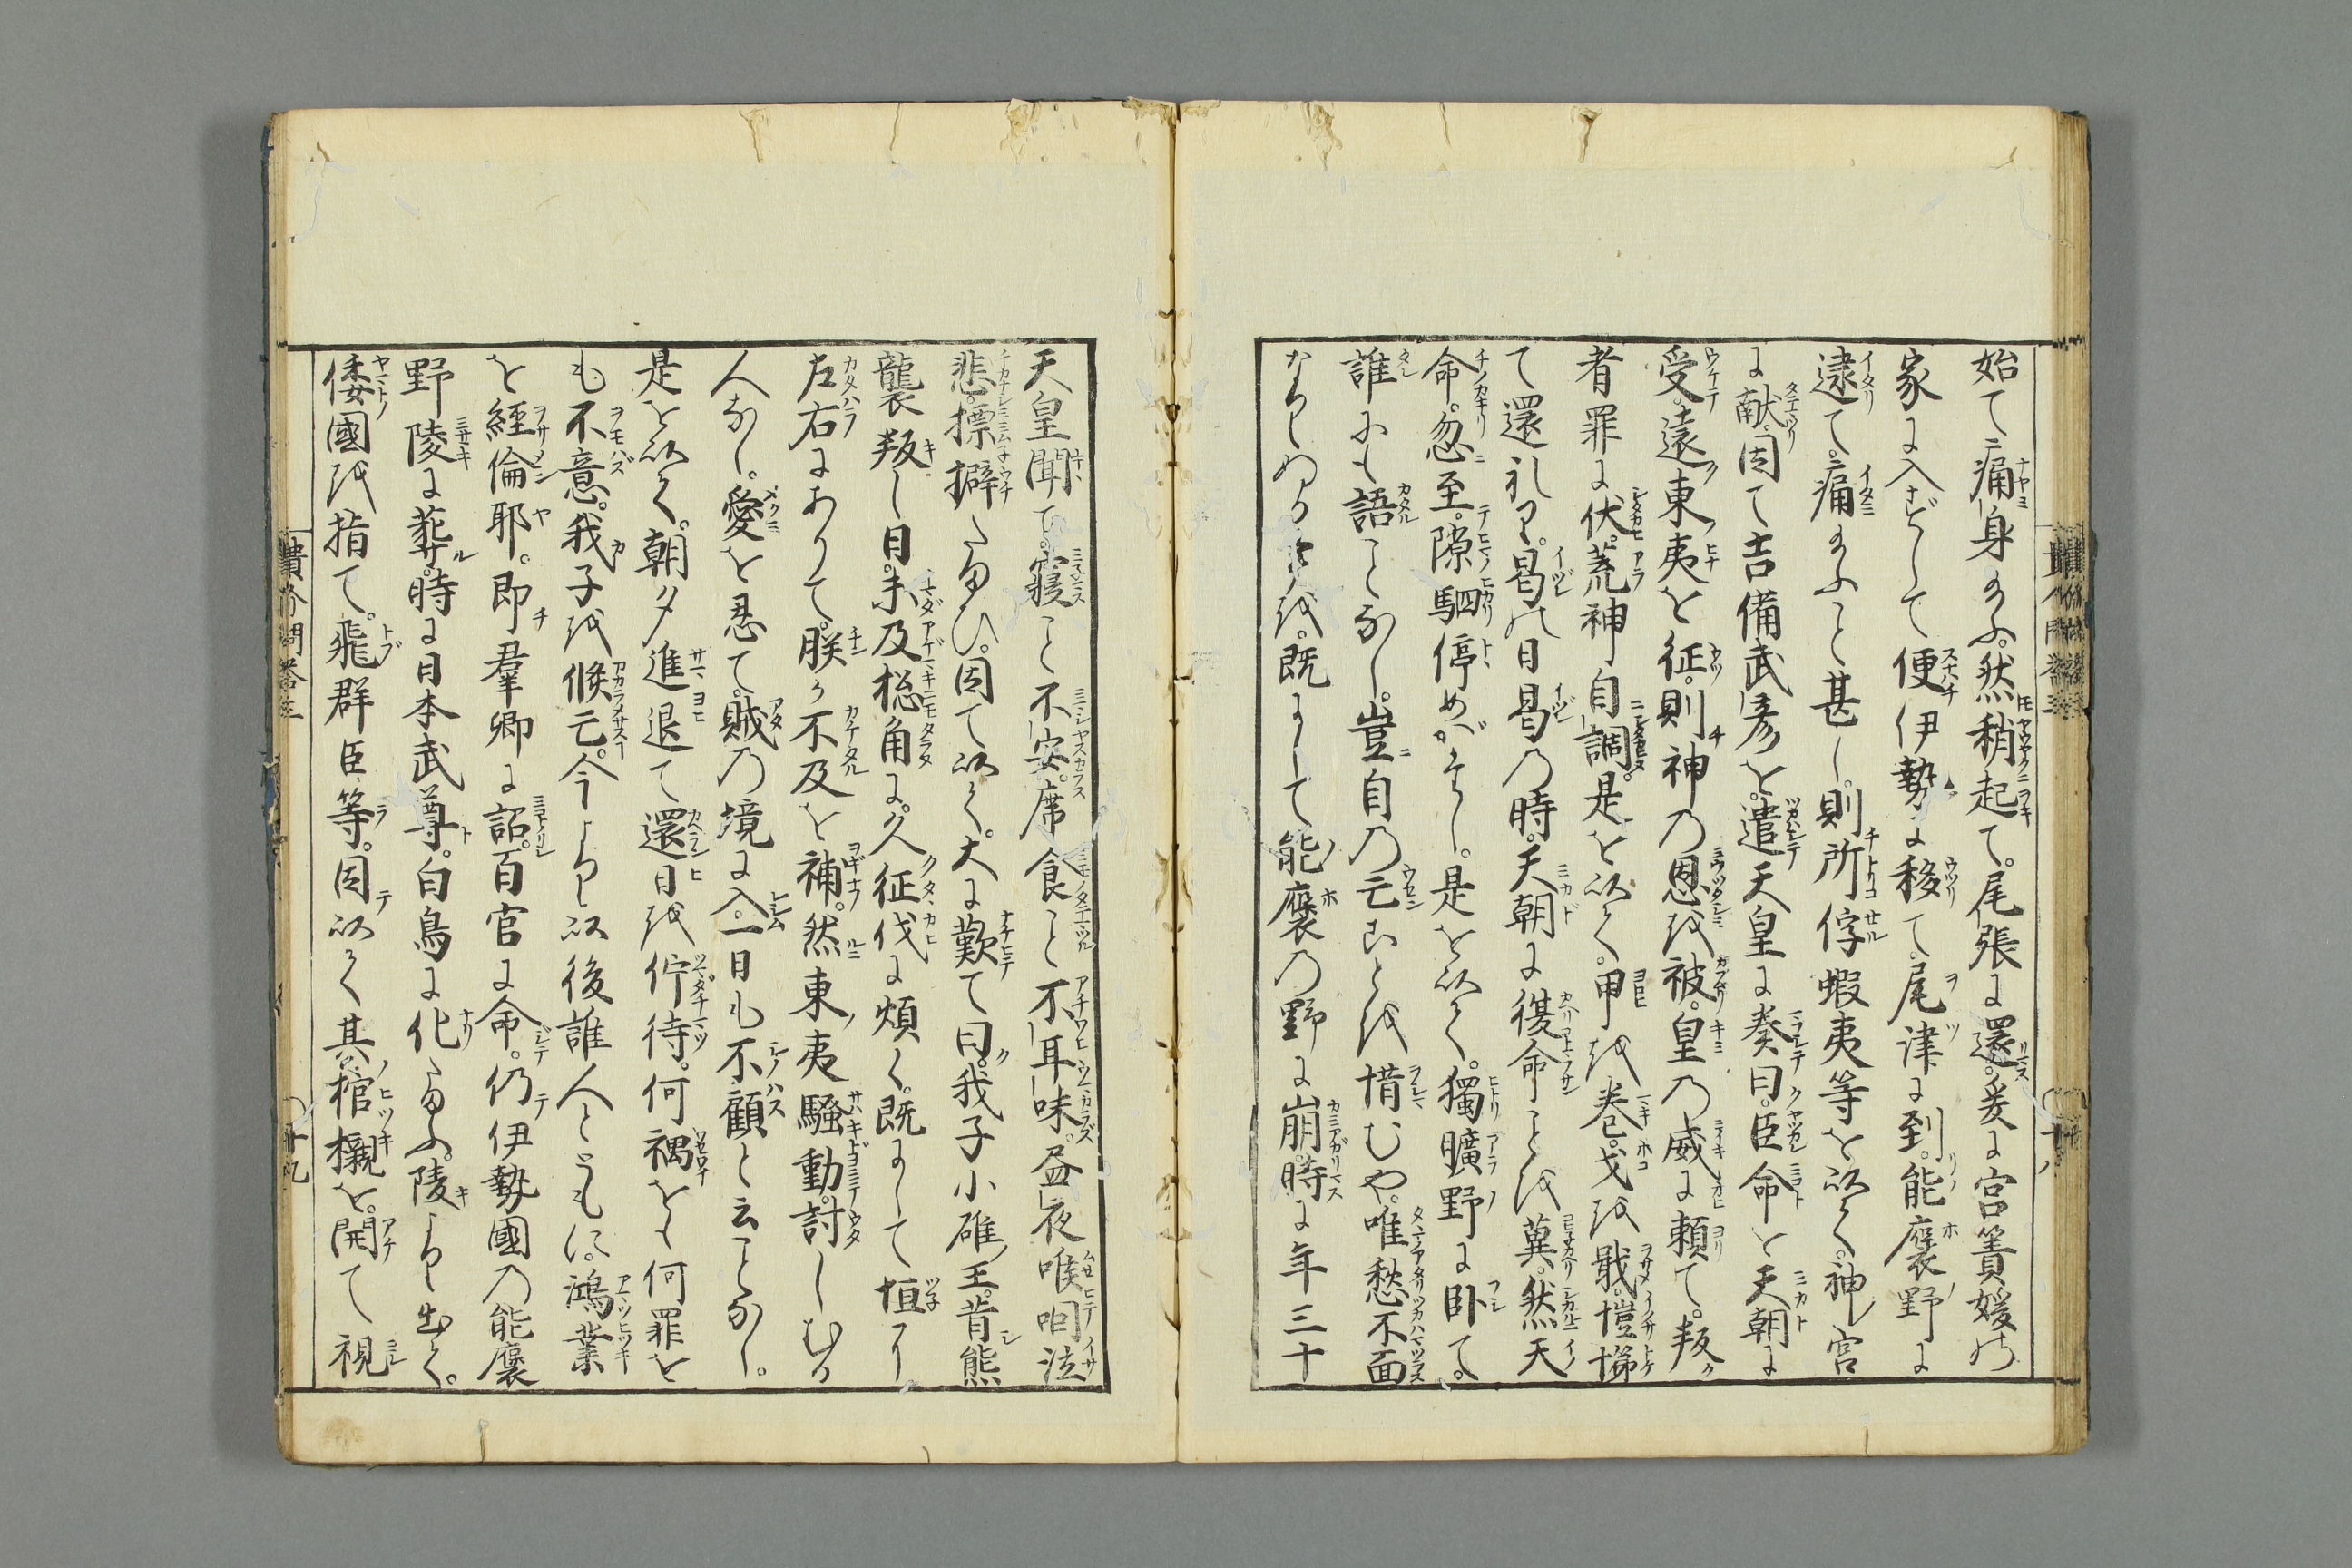 始て痛身玉ふ。然稍起て。尾張に還。爰に宮簀媛の
家に入ずして便伊勢に移て。尾津に到。能褒野に
逮て。痛玉ふこと甚し。則所俘蝦夷等を以て。神宮
に献。因て吉備武彦を遣天皇に奏曰。臣命を天朝に
受。遠東夷を征。則神の恩を被。皇の威に頼て。叛
者罪に伏。荒神自調。是を以て。甲を巻。戈を戢。愷悌
て還れり。曷の日曷の時。天朝に復命ことを冀。然天
命。忽至。隙駟停めがたし。是を以て。獨曠野に臥て。
誰にも語ことなし。豈自の亡ことを惜むや。唯愁不面
なりぬるを。既にして能褒の野に崩。時に年三十
天皇聞て。寢こと不安。席食こと不耳味。晝夜喉咽泣
悲。摽擗たまひ。因て以て。大に歎て曰。我子小碓王。昔熊
襲叛し日。未及総角に。久征伐に煩く。既にして恒に
左右にありて。朕が不及を補。然東夷騒動。討しむる
人なし。愛を忍て。賊の境に入。一日も不顧と云ことなし。
是を以て。朝夕進退て還日を佇待。何禍をも何罪を
も不意。我子を倏亡。今より以後誰人とともに。鴻業
を經倫耶。即羣卿に詔。百官に命。仍伊勢國の能褒
野陵に葬。時に日本武尊。白鳥に化たまふ。陵より出て。
倭國を指て。飛群臣等。因以て其棺櫬を。開て視
廿九